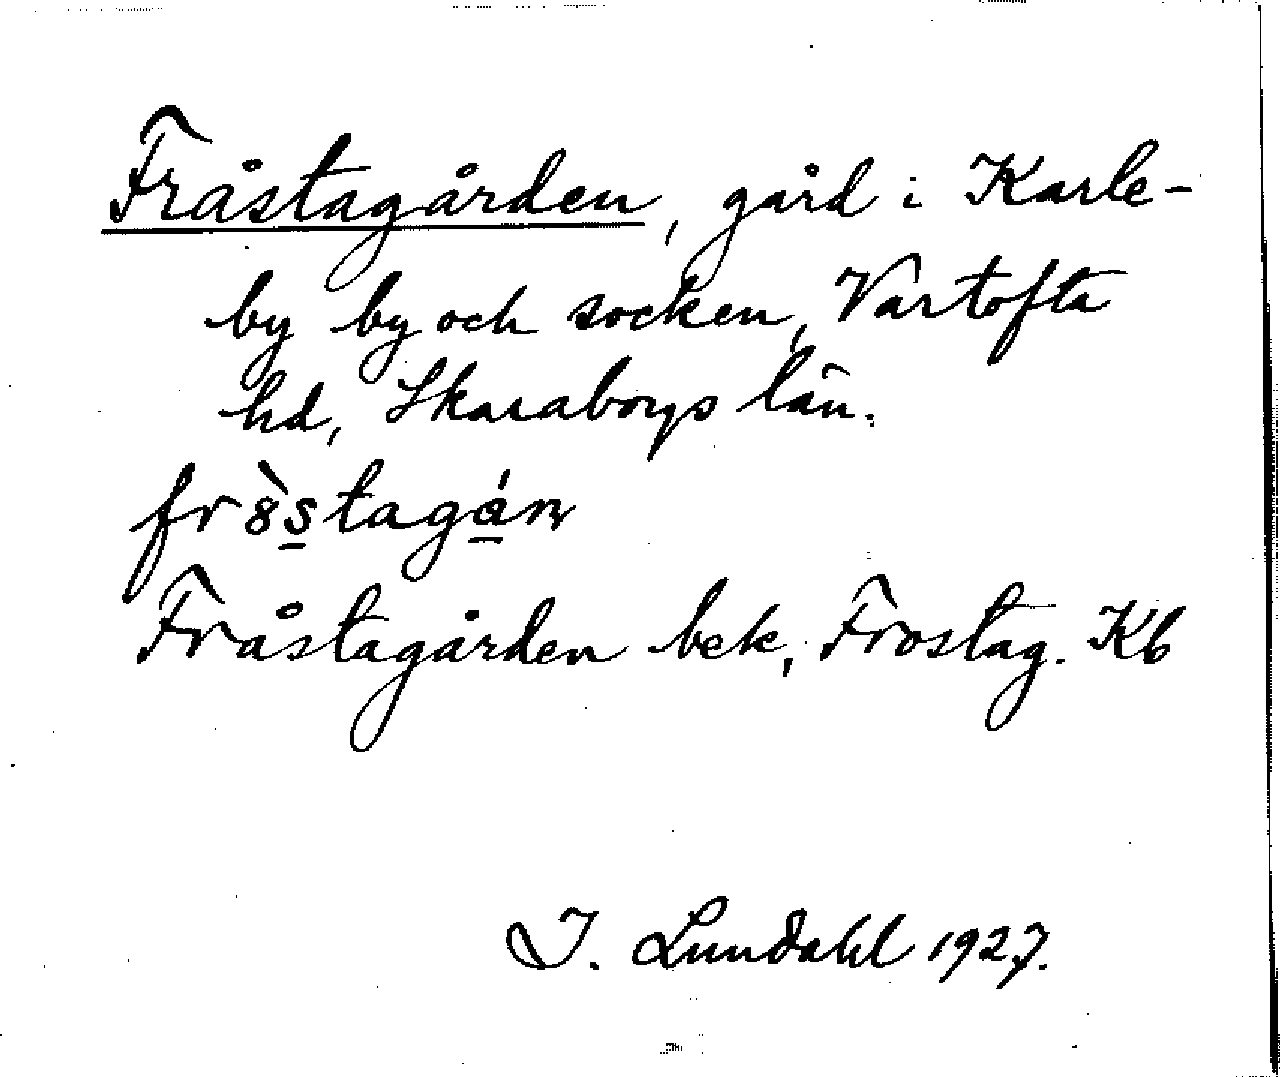 Fråstagården, gård i Karle-
by by och socken, Vartofta
hd, Skaraborgs län.
fr8̀s̲tagá̲n
Fråstagården bek, Frostag. Kb
I. Lundahl 1927.